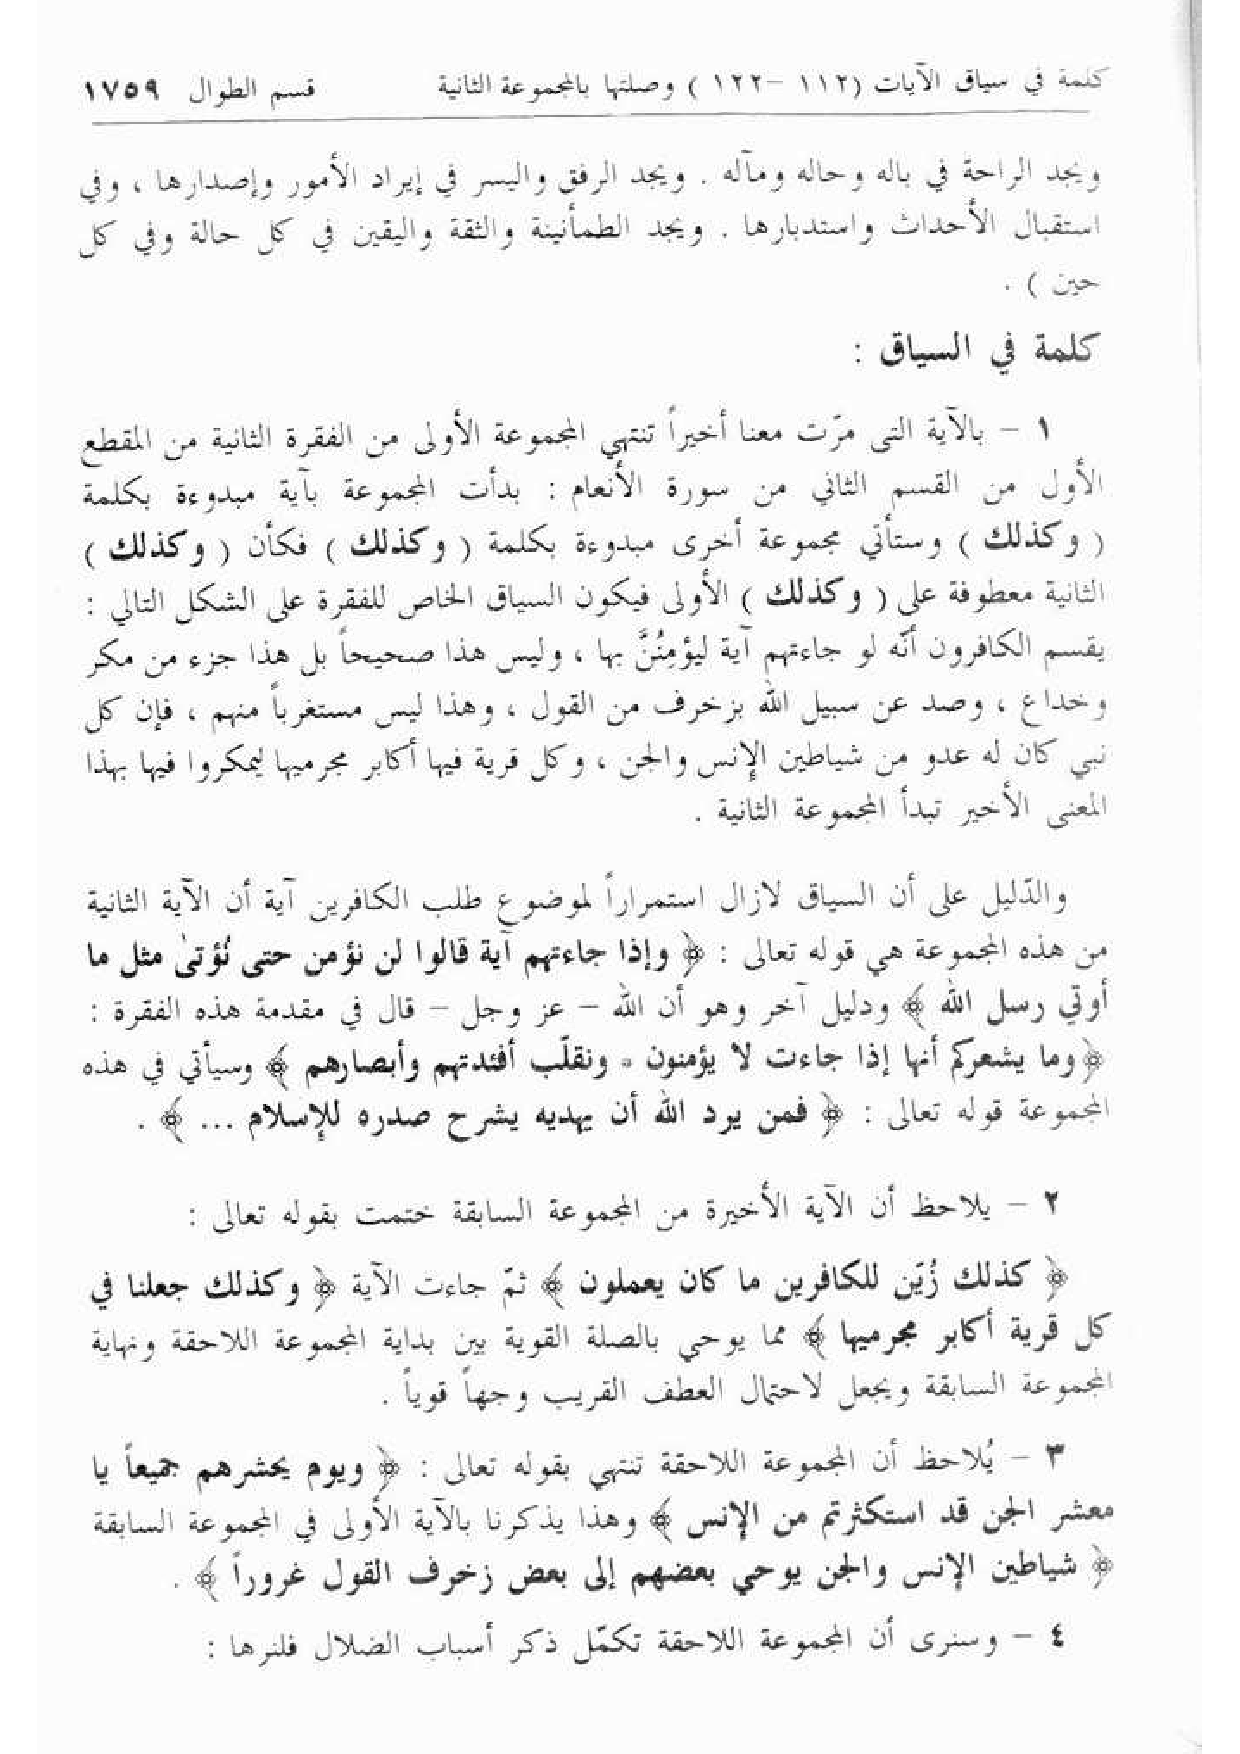 كلمة في سياق الآيات (١١٢ – ١٢٢) وصلتها بالمجموعة الثانية قسم الطوال ١٧٥٩
ويجد الراحة في باله وحاله ومآله . ويجد الرفق واليسر في إيراد الأمور وإصدارها ، وفي
استقبال الأحداث واستدبارها . ويجد الطمأنينة والثقة واليقين في كل حالة وفي كل
حين ) .
كلمة في السياق :
١ – بالآية التي مرّت معنا أخيراً تنتهي المجموعة الأولى من الفقرة الثانية من المقطع
الأول من القسم الثاني من سورة الأنعام : بدأت المجموعة بآية مبدوءة بكلمة
( وكذلك ) وستأتي مجموعة أخرى مبدوءة بكلمة ( وكذلك ) فكأن ( وكذلك )
الثانية معطوفة على ( وكذلك ) الأولى فيكون السياق الخاص للفقرة على الشكل التالي :
يقسم الكافرون أنّه لو جاءتهم آية ليؤمِنُنَّ بها ، وليس هذا صحيحاً بل هذا جزء من مكر
وخداع ، وصد عن سبيل الله بزخرف من القول ، وهذا ليس مستغرباً منهم ، فإن كل
نبي كان له عدو من شياطين الإنس والجن ، وكل قرية فيها أكابر مجرميها ليمكروا فيها بهذا
المعنى الأخير تبدأ المجموعة الثانية .
والدّليل على أن السياق لازال استمراراً لموضوع طلب الكافرين آية أن الآية الثانية
من هذه المجموعة هي قوله تعالى : ﴿ وإذا جاءتهم آية قالوا لن نؤمن حتى نُؤتىٰ مثل ما
أوتي رسل الله ﴾ ودليل آخر وهو أن الله – عز وجل – قال في مقدمة هذه الفقرة :
﴿ وما يشعركم أنها إذا جاءت لا يؤمنون * ونقلّب أفئدتهم وأبصارهم ﴾ وسيأتي في هذه
المجموعة قوله تعالى : ﴿ فمن يرد الله أن يهديه يشرح صدره للإسلام ... ﴾ .
٢ – يلاحظ أن الآية الأخيرة من المجموعة السابقة ختمت بقوله تعالى :
﴿ كذلك زُيّن للكافرين ما كان يعملون ﴾ ثمّ جاءت الآية ﴿ وكذلك جعلنا في
كل قرية أكابر مجرميها ﴾ مما يوحي بالصلة القوية بين بداية المجموعة اللاحقة ونهاية
المجموعة السابقة ويجعل لاحتمال العطف القريب وجهاً قوياً .
٣ – يُلاحظ أن المجموعة اللاحقة تنتهي بقوله تعالى : ﴿ ويوم يحشرهم جميعاً يا
معشر الجن قد استكثرتم من الإنس ﴾ وهذا يذكرنا بالآية الأولى في المجموعة السابقة
﴿ شياطين الإنس والجن يوحي بعضهم إلى بعض زخرف القول غروراً ﴾ .
٤ – وسنرى أن المجموعة اللاحقة تكمّل ذكر أسباب الضلال فلنرها :